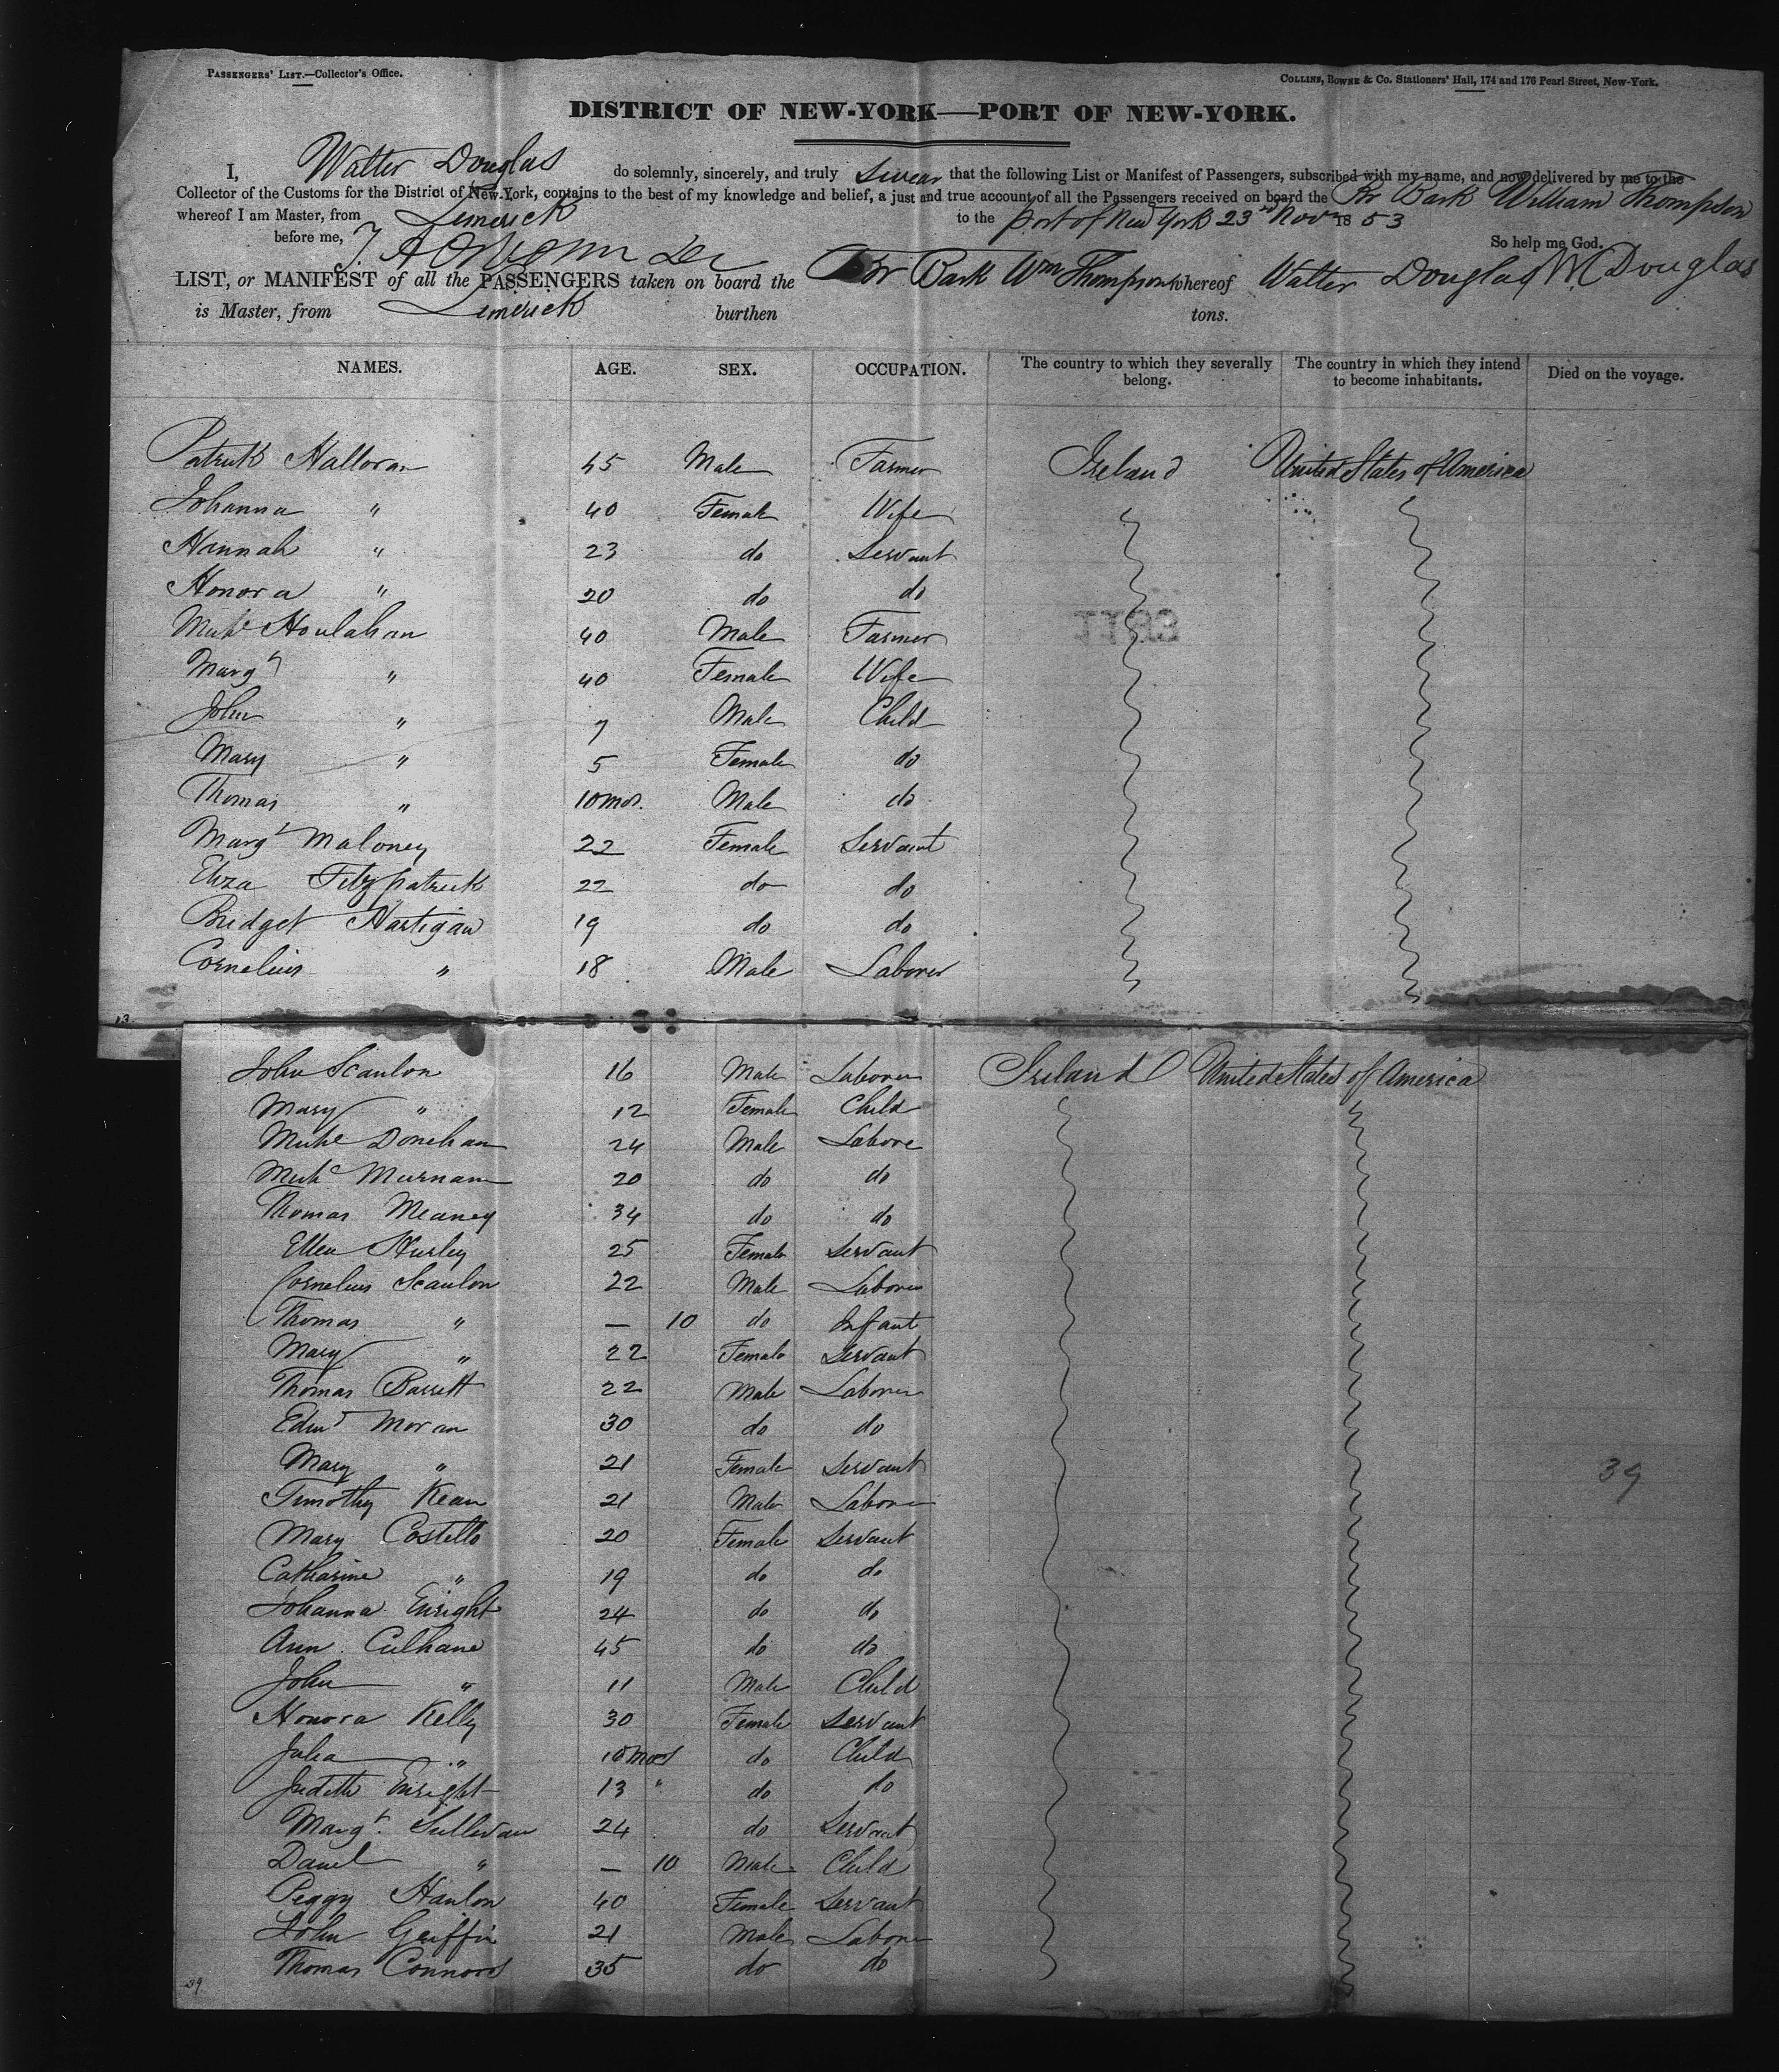 PASSENGERS' LIST.—Collector's Office.
COLLINS, BOWNE & Co. Stationers' Hall, 174 and 176 Pearl Street, New-York.
DISTRICT OF NEW-YORK—PORT OF NEW-YORK.
I, Walter Douglas do solemnly, sincerely, and truly Swear that the following List or Manifest of Passengers, subscribed with my name, and now delivered by me to the
Collector of the Customs for the District of New-York, contains to the best of my knowledge and belief, a just and true account of all the Passengers received on board the Br Bark William Thompson
whereof I am Master, from Limerick to the port of New York 23rd Novr 1853
So help me God.
before me, W Douglas
LIST, or MANIFEST of all the PASSENGERS taken on board the Br Bark Wm Thompson whereof Walter Douglas
is Master, from Limerick burthen tons.
NAMES. AGE. SEX. OCCUPATION. The country to which they severally belong. The country in which they intend to become inhabitants. Died on the voyage.
Patrick Halloran 45 Male Farmer Ireland United States of America
Johanna " 40 Female Wife
Hannah " 23 do Servant
Honora " 20 do do
Miche Houlahan 40 Male Farmer
Margt " 40 Female Wife
John " 7 Male Child
Mary " 5 Female do
Thomas " 10 mos. Male do
Margt Maloney 22 Female Servant
Eliza Fitzpatrick 22 do do
Bridget Hartigan 19 do do
Cornelius " 18 Male Laborer
13
John Scanlon 16 Male Laborer Ireland United States of America
Mary " 12 Female Child
Miche Donehan 24 Male Labore
Miche Murnane 20 do do
Thomas Meaney 34 do do
Ellen Hurley 25 Female Servant
Cornelius Scanlon 22 Male Laborer
Thomas " — 10 do Infant
Mary " 22 Female Servant
Thomas Barrett 22 Male Laborer
Edwd Moran 30 do do
Mary " 21 Female Servant
39
Timothy Kean 21 Male Laborer
Mary Costello 20 Female Servant
Catharine " 19 do do
Johanna Enright 24 do do
Ann Culhane 45 do do
John " 11 Male Child
Honora Kelly 30 Female Servant
Julia " 10 mos do Child
Judith Enright 13 " do do
Margt. Sullivan 24 do Servant
Daniel " — 10 Male Child
Peggy Hanlon 40 Female Servant
John Griffin 21 Male Laborer
Thomas Connors 35 do do
39